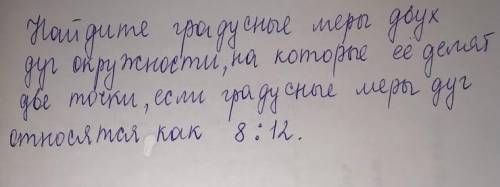 Найдите градусные меры двух
дуг окружности, на которые её делят
две точки, если градусные меры дуг
относятся как 8:12.